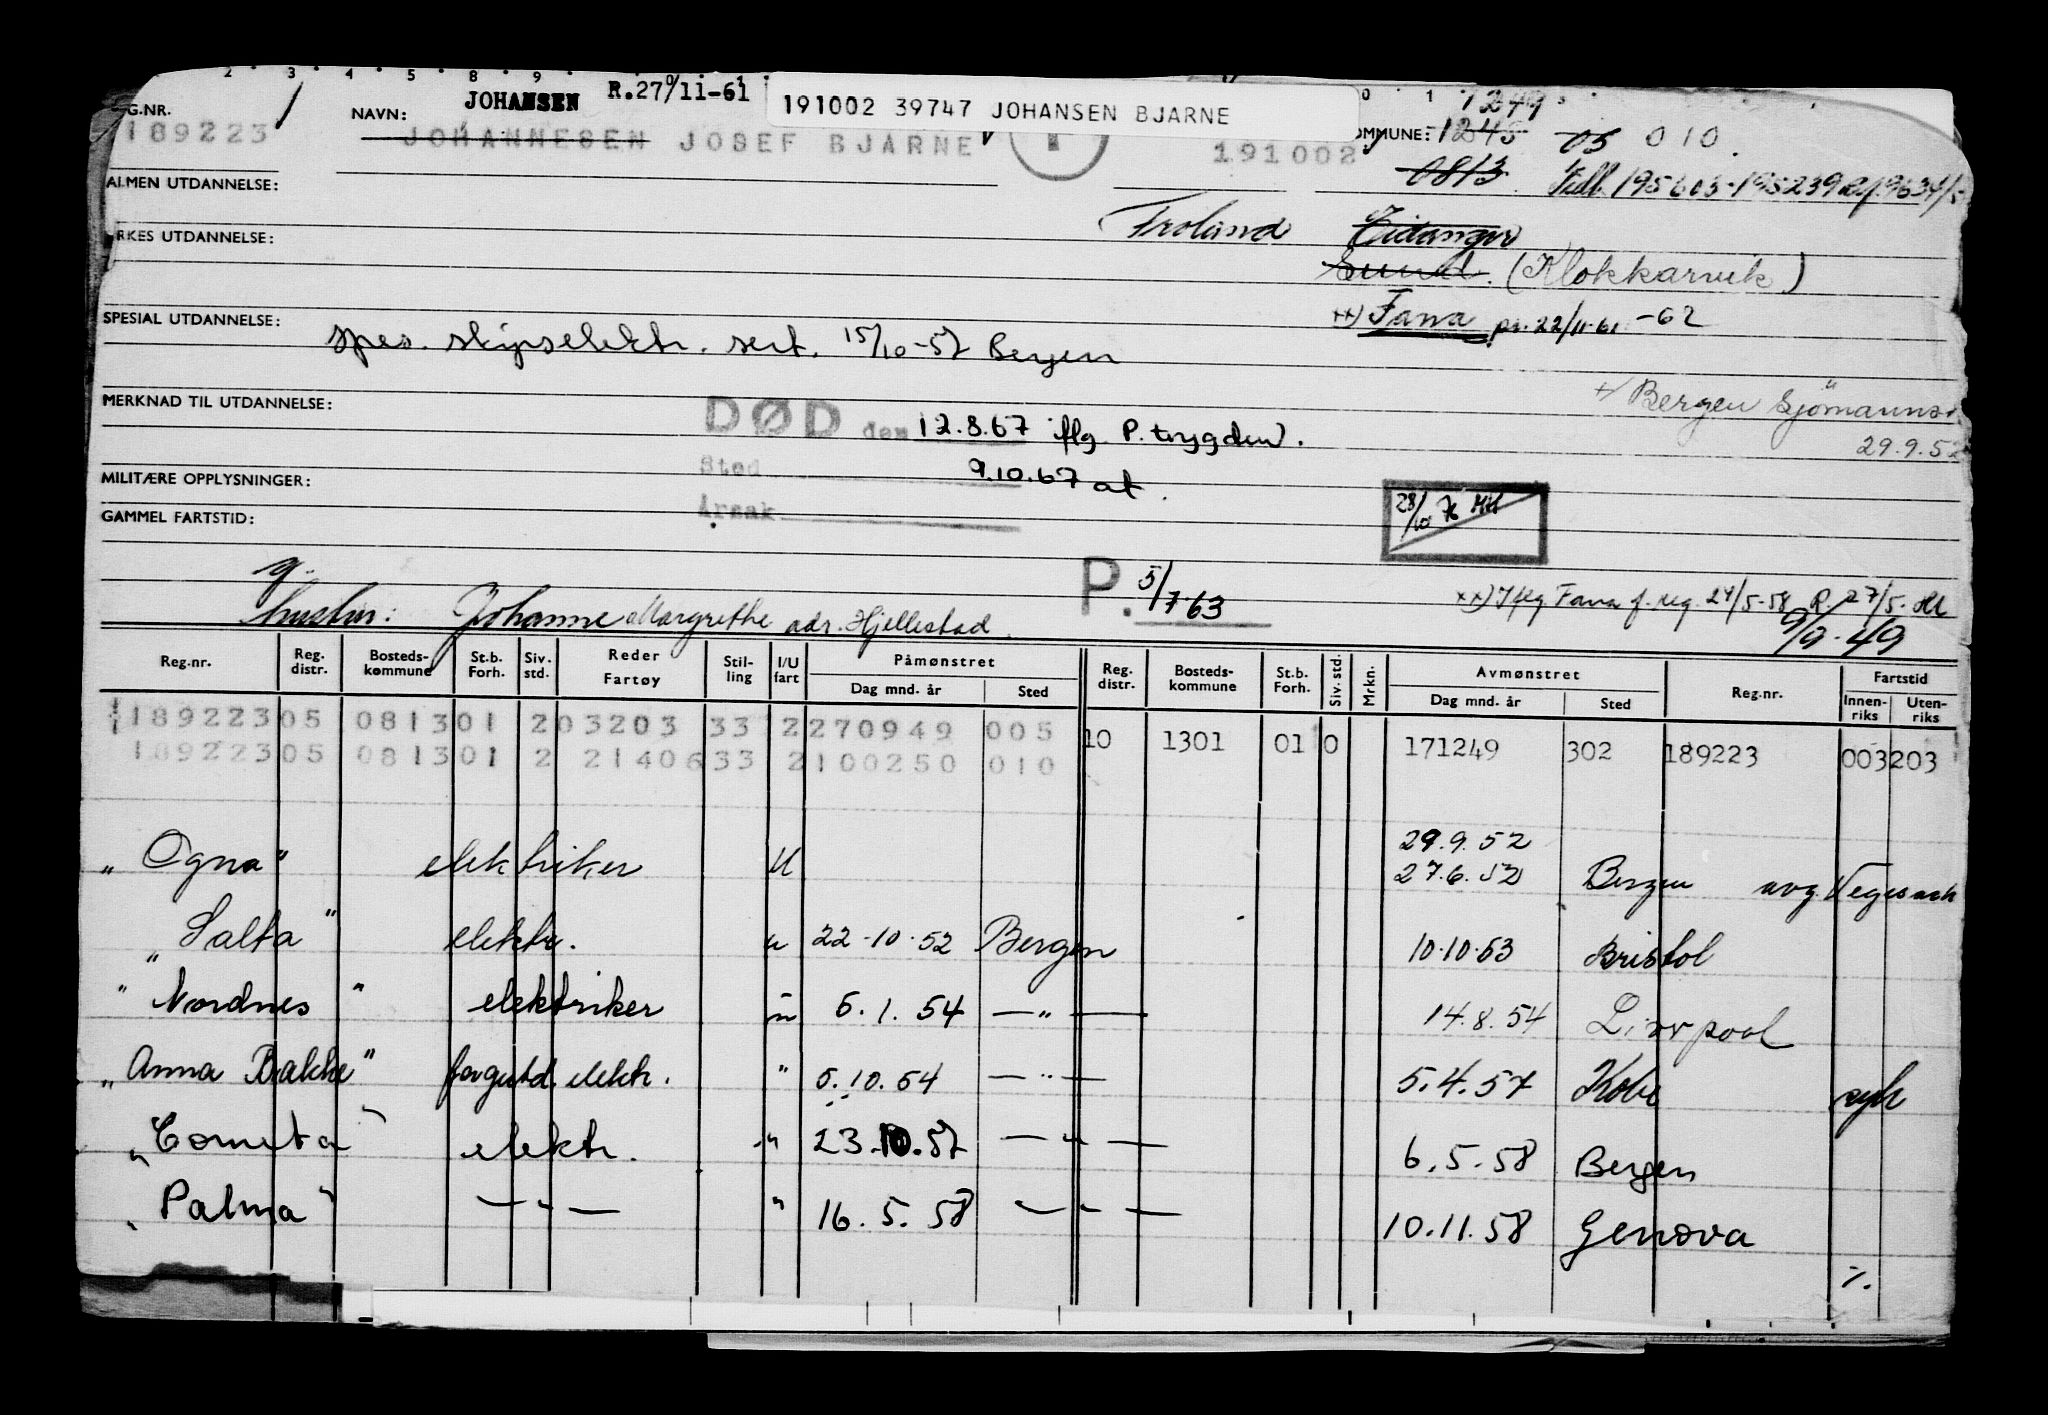 2 · 3 · 4 · 5 · 8 · 9 ·
G.NR. NAVN: JOHANSEN R.27/11-61 191002 39747 JOHANSEN BJARNE 0 1 1249
189223 JOHANNESEN JOSEF BJARNE 191002 OMMUNE: 1245 05 010.
0813 Fullb. 195603-195239
ALMEN UTDANNELSE:
Troland Eidanger
RKES UTDANNELSE: Sund. (Klokkarvik)
xx) Fana pr. 22/11-61 -62
SPESIAL UTDANNELSE: spes. skipselektr. sert. 15/10-57 Bergen
+/ Bergen Sjömanns.
MERKNAD TIL UTDANNELSE: DØD den 12.8.67 iflg. P. trygden.
29.9.52
Sted 9.10.67 at.
MILITÆRE OPPLYSNINGER:
28/10 76 MH
GAMMEL FARTSTID: Årsak
g.
P. 5/7.63
xx) Iflg Fana f. reg. 24/5-58 R. 27/5.
hustru: Johanne Margrethe adr. Hjellestad
9/9-49
Reg.nr. Reg. distr. Bosteds- kommune St.b. Forh. Siv. std. Reder Fartøy Stil- ling I/U fart Påmønstret Dag mnd. år Sted Reg. distr. Bosteds- kommune St.b. Forh. Siv. std. Mrkn. Avmønstret Dag mnd. år Sted Reg.nr. Fartstid Innen- riks Uten- riks
189223 05 0813 01 2 03203 33 2 270949 005 10 1301 01 0 171249 302 189223 003 203
189223 05 0813 01 2 21406 33 2 100250 010
29.9.52
"Ogna" elektriker U 27.6.52 Bergen avg. Vegesack
"Salta" elektr. u 22-10-52 Bergen 10.10.53 Bristol
"Nordnes" elektriker u 6.1.54 —"— 14.8.54 Liverpool
"Anna Bakke" forgutd. elektr. " 5.10.54 —"— 5.4.57 Kobe syk
"Cometa" elektr. " 23.10.57 —"— 6.5.58 Bergen
"Palma" —"— " 16.5.58 —"— 10.11.58 Genova
%.